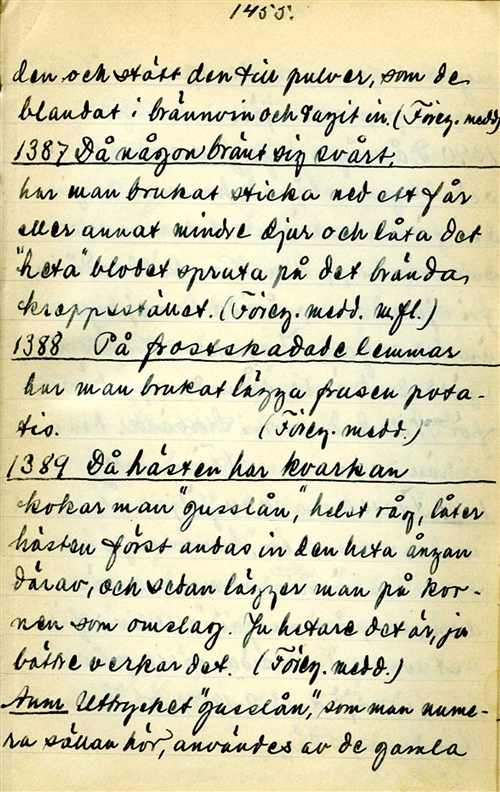 1455.
den och stött den till pulver, som de
blandat i brännvin och tagit in. (Föreg. medd)
1387 Då någon bränt sig svårt,
har man brukat sticka ned ett får
eller annat mindre djur och låta det
"heta" blodet spruta på det brända
kroppsstället. (Föreg. medd. m.fl.)
1388 På frostskadade lemmar
har man brukat lägga frusen pota-
tis. (Föreg. medd.)
1389 Då hästen har kvarkan
kokar man "gusslån", helst råg, låter
hästen först andas in den heta ångan
därav, och sedan lägger man på kor-
nen som omslag. Ju hetare det är, ju
bättre verkar det. (Föreg. medd.)
Anm Uttrycket "gusslån", som man nume-
ra sällan hör, användes av de gamla